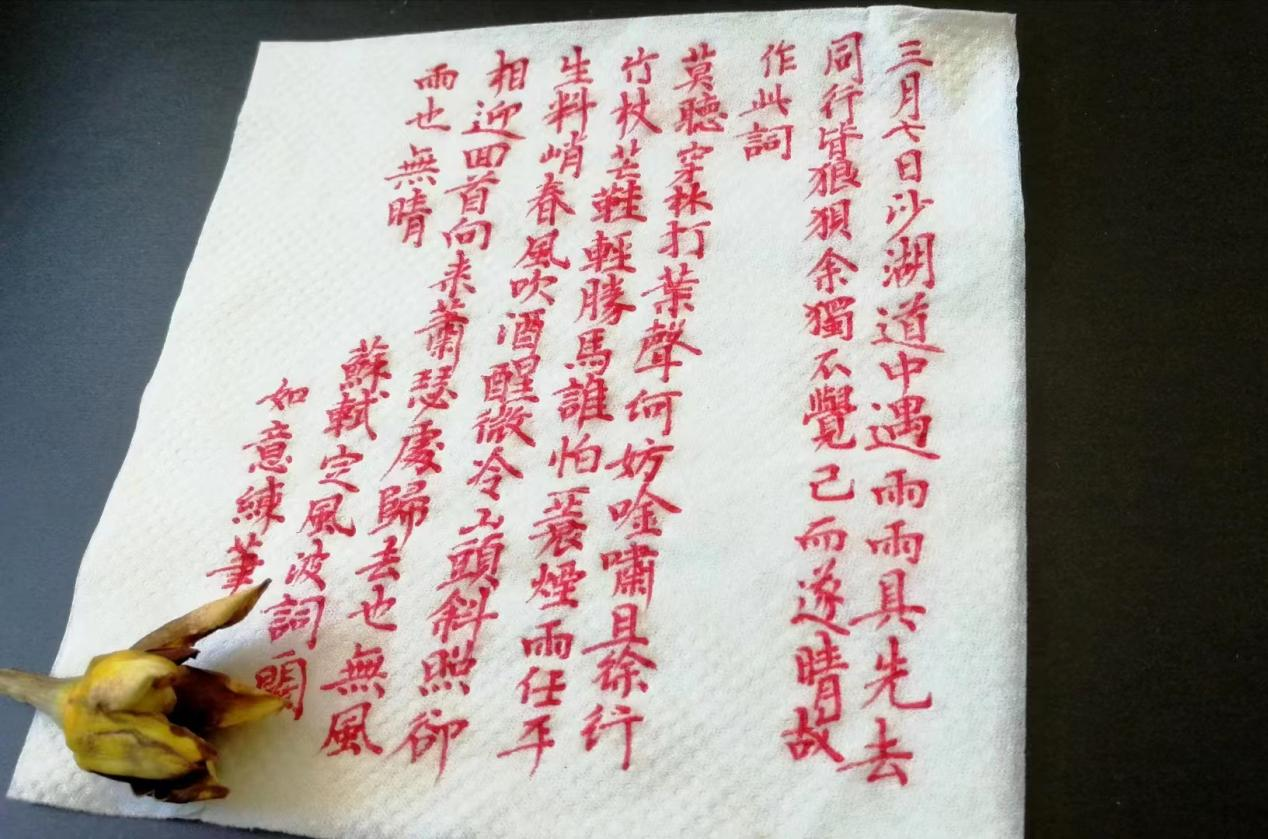 三月七日沙湖道中遇雨雨具先去
同行皆狼狽余獨不覺已而遂晴故
作此詞
莫聽穿林打葉聲何妨唫嘯且徐行
竹杖芒鞋輕勝馬誰怕一蓑煙雨任平
生料峭春風吹酒醒微冷山頭斜照卻
相迎回首向来蕭瑟處歸去也無風
雨也無晴
蘇軾定風波詞一闋
如意練筆